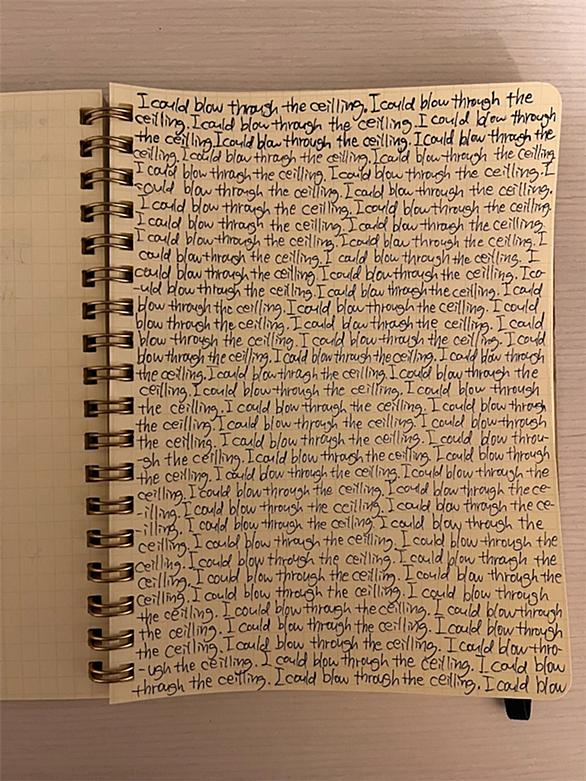 I could blow through the ceilling. I could blow through the
ceilling. I could blow through the ceilling. I could blow through
the ceilling. I could blow through the ceilling. I could blow through the
ceilling. I could blow through the ceilling. I could blow through the ceilling.
I could blow through the ceilling. I could blow through the ceilling. I
could blow through the ceilling. I could blow through the ceilling.
I could blow through the ceilling. I could blow through the ceilling.
I could blow through the ceilling. I could blow through the ceilling.
I could blow through the ceilling. I could blow through the ceilling. I
could blow through the ceilling. I could blow through the ceilling. I
could blow through the ceilling. I could blow through the ceilling. I co-
-uld blow through the ceilling. I could blow through the ceilling. I could
blow through the ceilling. I could blow through the ceilling. I could
blow through the ceilling. I could blow through the ceilling. I could
blow through the ceilling. I could blow through the ceilling. I could
blow through the ceilling. I could blow through the ceilling. I could blow through
the ceilling. I could blow through the ceilling. I could blow through the
ceilling. I could blow through the ceilling. I could blow through
the ceilling. I could blow through the ceilling. I could blow through
the ceilling. I could blow through the ceilling. I could blow through
the ceilling. I could blow through the ceilling. I could blow throu-
-gh the ceilling. I could blow through the ceilling. I could blow through
the ceilling. I could blow through the ceilling. I could blow through the
ceilling. I could blow through the ceilling. I could blow through the ce-
-illing. I could blow through the ceilling. I could blow through the ce-
-illing. I could blow through the ceilling. I could blow through the
ceilling. I could blow through the ceilling. I could blow through the
ceilling. I could blow through the ceilling. I could blow through the
ceilling. I could blow through the ceilling. I could blow through the
ceilling. I could blow through the ceilling. I could blow through
the ceilling. I could blow through the ceilling. I could blow through
the ceilling. I could blow through the ceilling. I could blow through
the ceilling. I could blow through the ceilling. I could blow thro-
-ugh the ceilling. I could blow through the ceilling. I could blow
through the ceilling. I could blow through the ceilling. I could blow